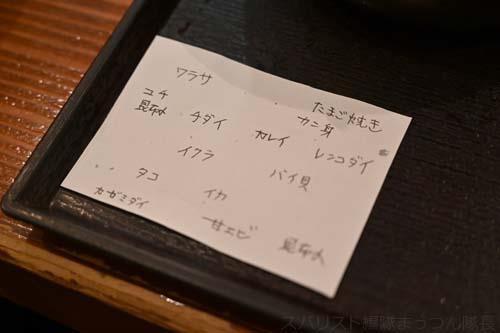 ワラサ
たまご焼き
コチ
昆布〆
チダイ
カレイ
カニ身
レンコダイ
イクラ
タコ
イカ
バイ貝
カガミダイ
甘エビ
昆布〆
スパリスト爆隊まっつん隊長